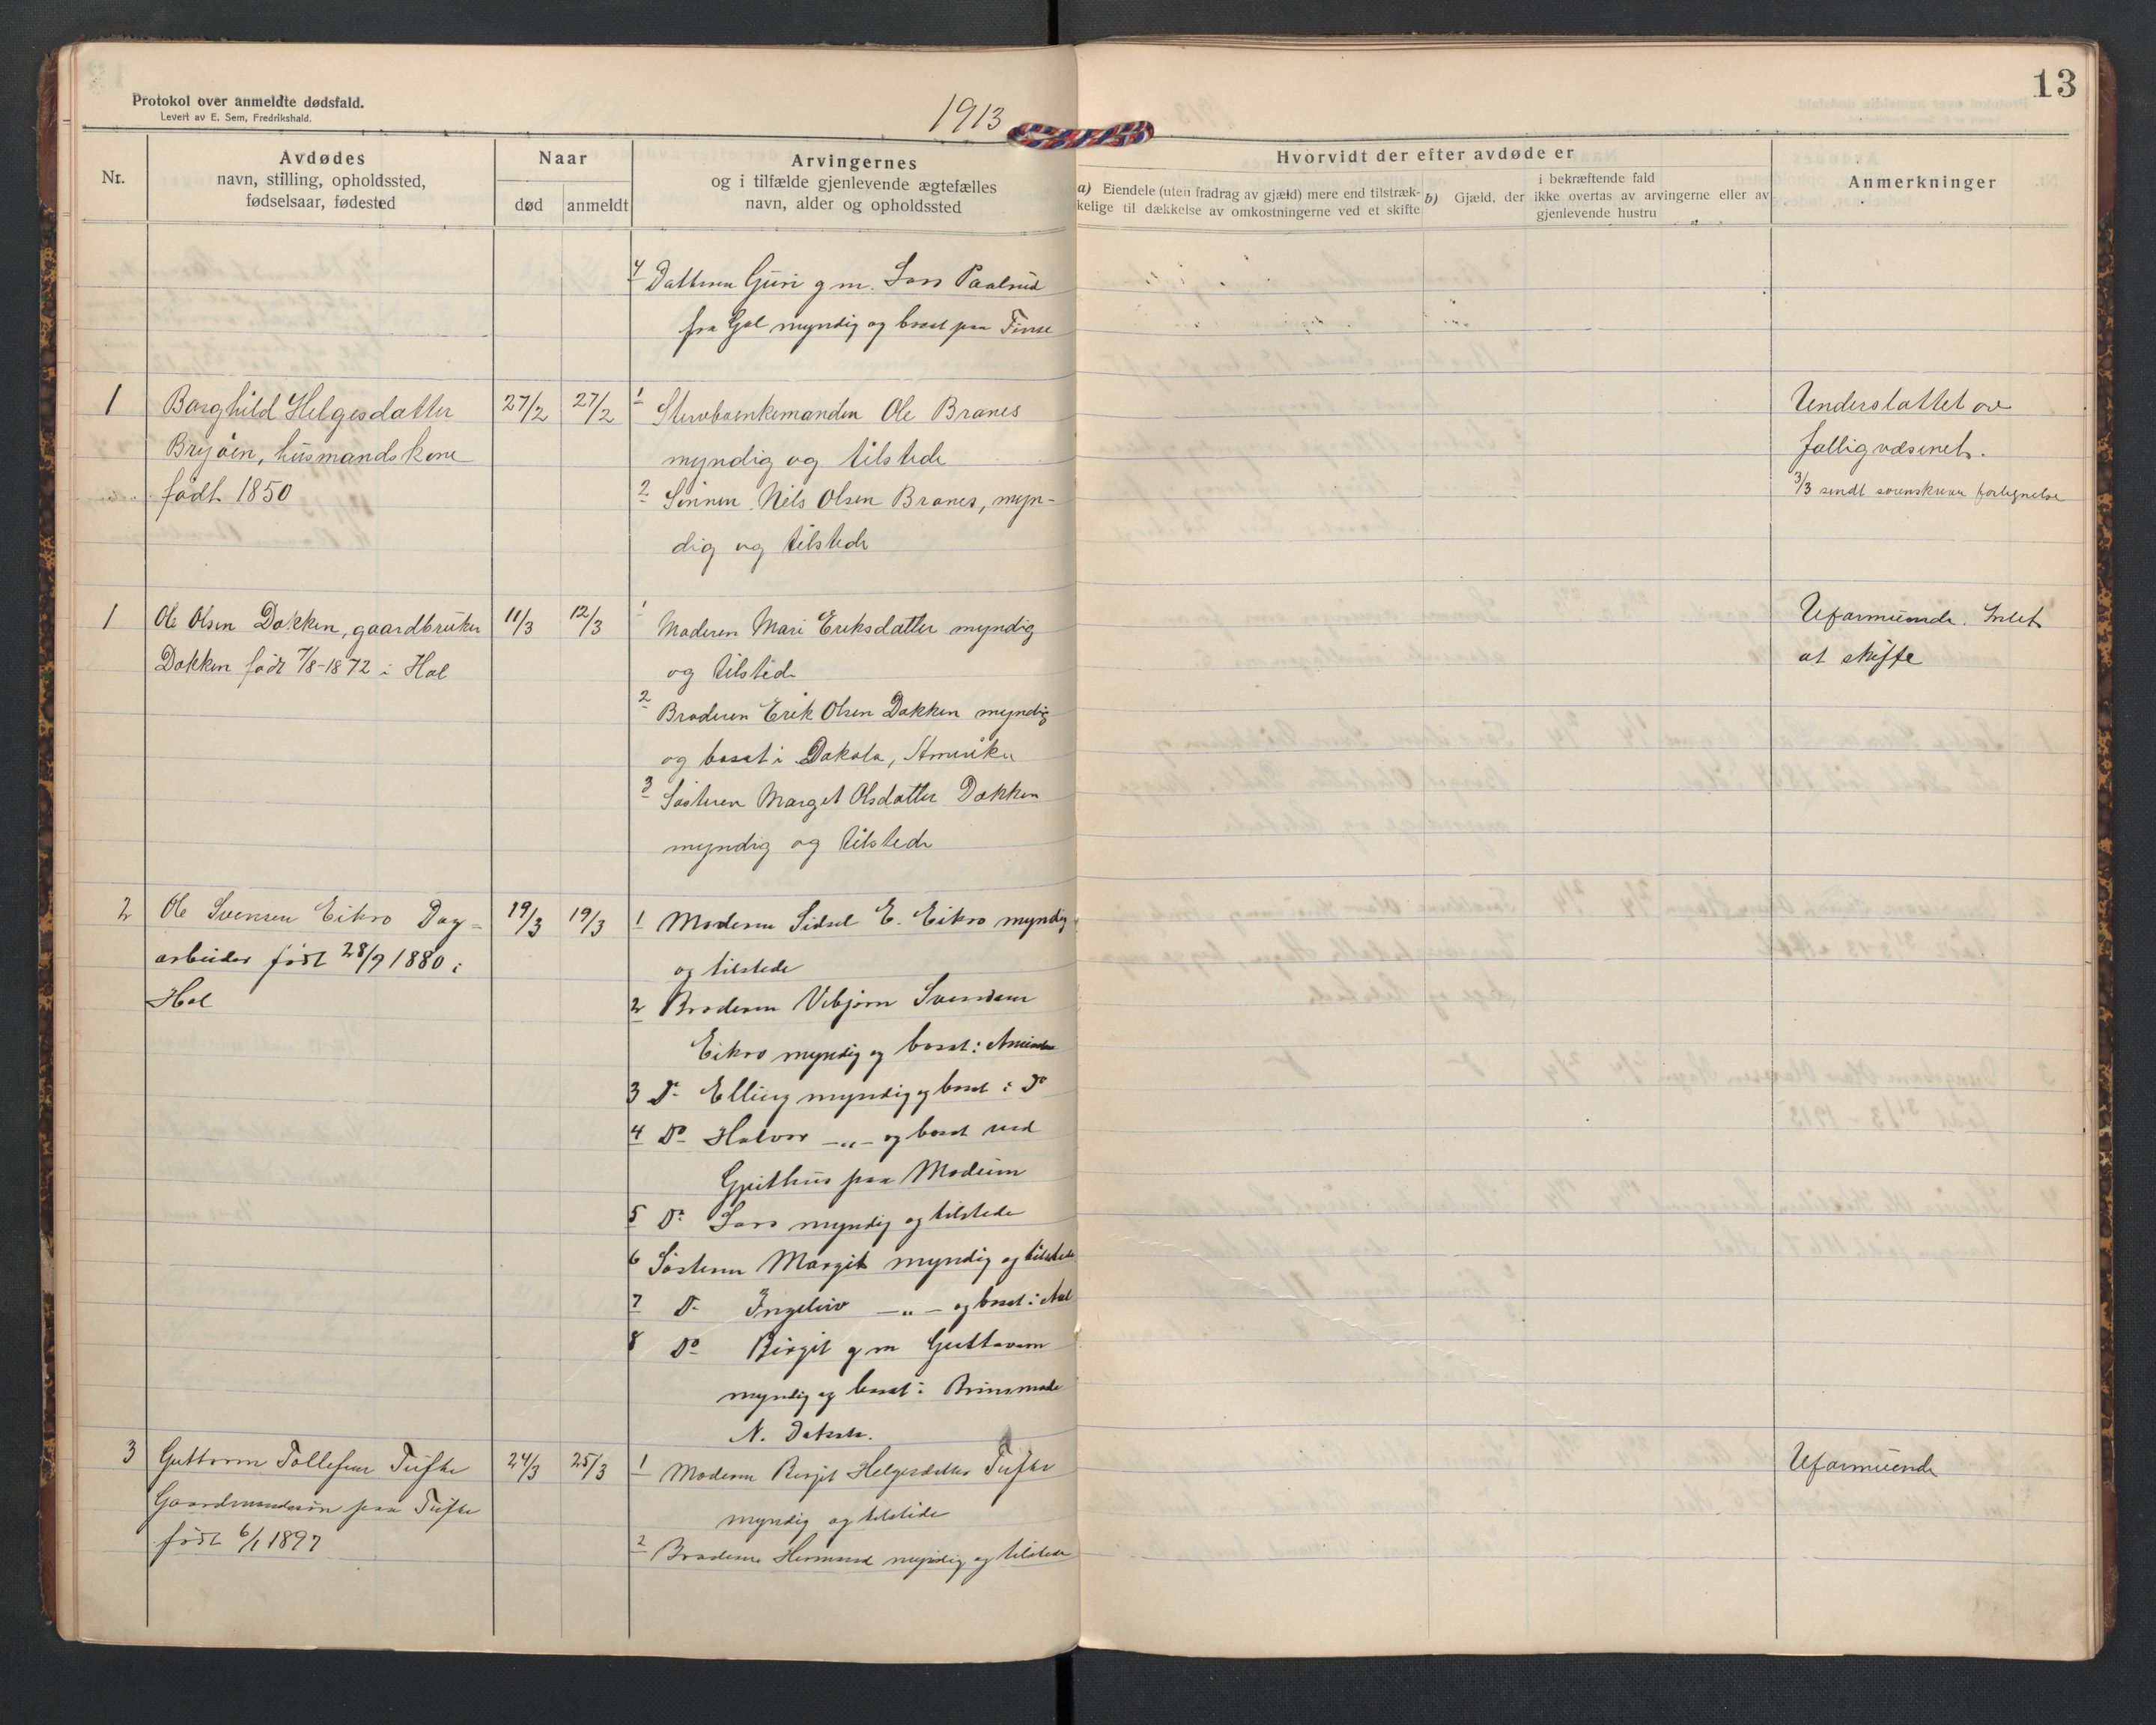 Protokol over anmeldte dødsfald.
Levert av E. Sem, Fredrikshald.
1913
13
Nr.
Avdødes
navn, stilling, opholdssted,
fødselsaar, fødested
Naar
død
anmeldt
Arvingernes
og i tilfælde gjenlevende ægtefælles
navn, alder og opholdssted
Hvorvidt der efter avdøde er
a) Eiendele (uten fradrag av gjæld) mere end tilstræk-
kelige til dækkelse av omkostningerne ved et skifte
i bekræftende fald
b) Gjæld, der ikke overtas av arvingerne eller av
gjenlevende hustru
Anmerkninger
4 Datteren Guri g m. Lars Paalsrud
fra Gol myndig og bosat paa Finse
1
Borghild Helgesdatter
Bryöen, husmandskone
født 1850
27/2
27/2
1 Ole Branes
myndig og tilstede
2 Sönnen Nils Olsen Branes, myn-
dig og tilstede
Understøttet av
fattigvæsenet.
3/3 sendt sorenskriver fortegnelse
1
Ole Olsen Dokken, gaardbruker
Dokken født 7/8-1872 i Hol
11/3
12/3
1 Moderen Mari Eriksdatter myndig
og tilstede
2 Broderen Erik Olsen Dokken myndig
og bosat i Dakota, Amerika
3 Søsteren Marget Olsdatter Dokken
myndig og tilstede
Uformuende. Intet
at skifte
2
Ole Svensen Eikro Dag-
arbeider født 28/9 1880 i
Hol
19/3
19/3
1 Moderen Sidsel E. Eikro myndig
og tilstede
2 Broderen Vebjørn Svendsen
Eikro myndig og bosat i Amerika
3 Do Elling myndig og bosat i Do
4 Do Halvor —„— og bosat ved
Geithus paa Modum
5 Do Lars myndig og tilstede
6 Søsteren Margit myndig og tilstede
7 Do Ingeleiv —„— og bosat i Aal
8 Do Birgit g m Guttorm
myndig og bosat i Brinsmade
N. Dakota.
3
Guttorm Tollefsen Tufte
Gaardmandssøn paa Tufte
født 6/1 1897
24/3
25/3
1 Moderen Birgit Helgesdatter Tufte
myndig og tilstede
2 Broderen Hermund myndig og tilstede
Uformuende